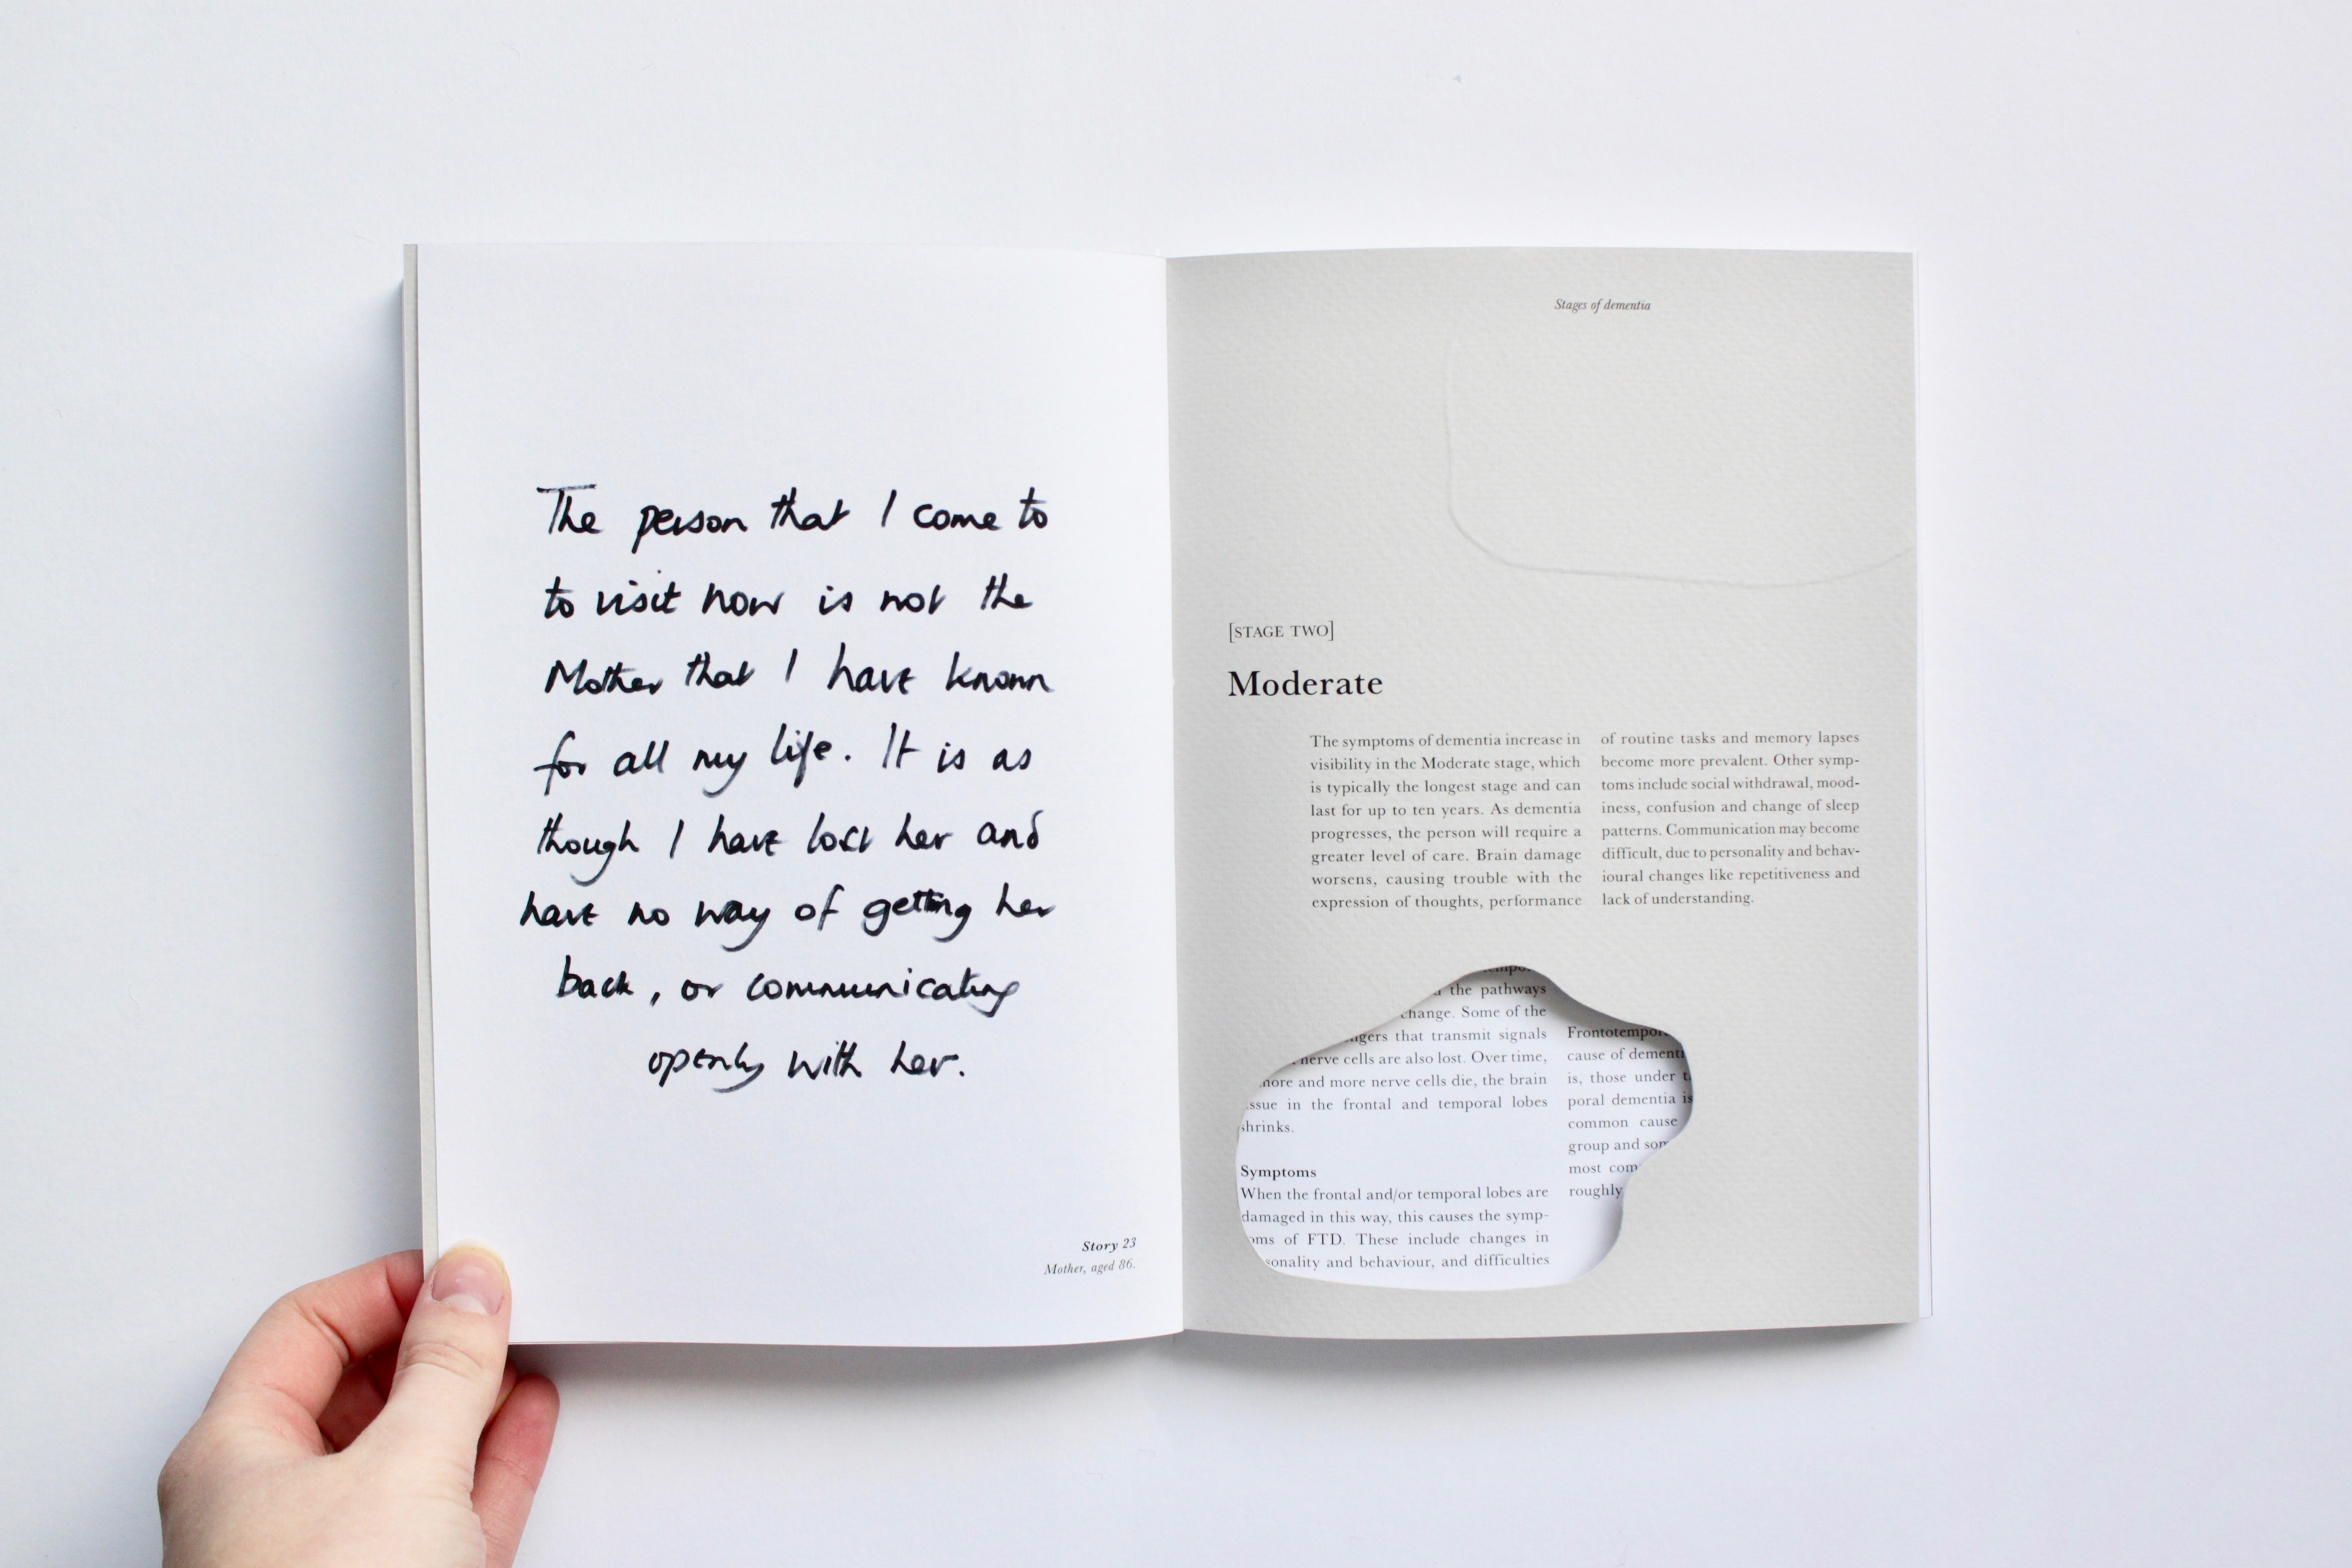 The person that I come to
to visit now is not the
Mother that I have known
for all my life. It is as
though I have lost her and
have no way of getting her
back, or communicating
openly with her.
Story 23
Mother, aged 86.
Stages of dementia
[STAGE TWO]
Moderate
The symptoms of dementia increase in
visibility in the Moderate stage, which
is typically the longest stage and can
last for up to ten years. As dementia
progresses, the person will require a
greater level of care. Brain damage
worsens, causing trouble with the
expression of thoughts, performance
of routine tasks and memory lapses
become more prevalent. Other symp-
toms include social withdrawal, mood-
iness, confusion and change of sleep
patterns. Communication may become
difficult, due to personality and behav-
ioural changes like repetitiveness and
lack of understanding.
the pathways
change. Some of the
ngers that transmit signals
nerve cells are also lost. Over time,
more and more nerve cells die, the brain
ssue in the frontal and temporal lobes
shrinks.
Symptoms
When the frontal and/or temporal lobes are
damaged in this way, this causes the symp-
oms of FTD. These include changes in
sonality and behaviour, and difficulties
Frontotempor
cause of dementi
is, those under t
poral dementia is
common cause
group and som
most com
roughly